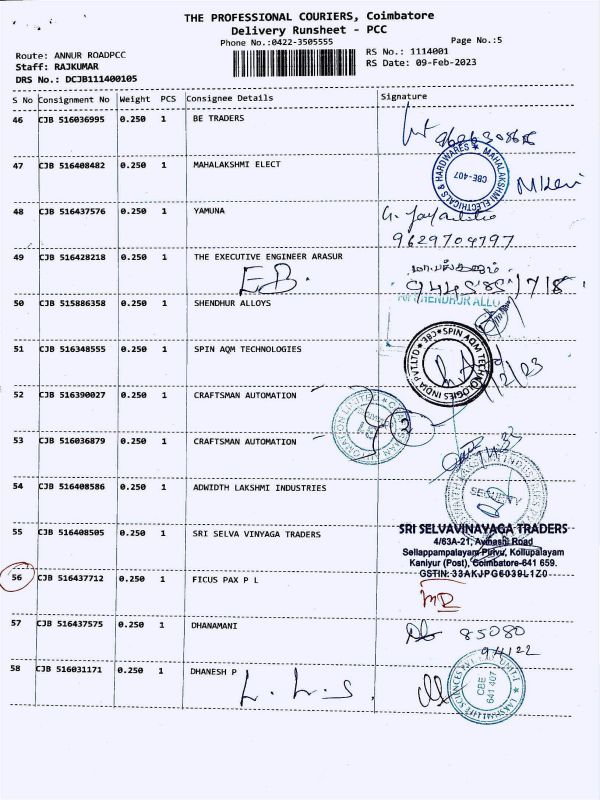 THE PROFESSIONAL COURIERS, Coimbatore
Delivery Runsheet - PCC
Phone No.:0422-3505555
Page No.:5
Route: ANNUR ROADPCC
RS No.: 1114001
Staff: RAJKUMAR
RS Date: 09-Feb-2023
DRS No.: DCJB111400105
S No Consignment No Weight PCS Consignee Details Signature
46 CJB 516036995 0.250 1 BE TRADERS
47 CJB 516408482 0.250 1 MAHALAKSHMI ELECT
MAHALAKSHMI ELECTRICALS & HARDWARES
CBE-407
48 CJB 516437576 0.250 1 YAMUNA
9629704797
49 CJB 516428218 0.250 1 THE EXECUTIVE ENGINEER ARASUR
E.B.
50 CJB 515886358 0.250 1 SHENDHUR ALLOYS
51 CJB 516348555 0.250 1 SPIN AQM TECHNOLOGIES
SPIN AQM TECHNOLOGIES INDIA PVT.LTD
52 CJB 516390027 0.250 1 CRAFTSMAN AUTOMATION
53 CJB 516036879 0.250 1 CRAFTSMAN AUTOMATION
54 CJB 516408586 0.250 1 ADWIDTH LAKSHMI INDUSTRIES
SECURITY
55 CJB 516408505 0.250 1 SRI SELVA VINYAGA TRADERS
SRI SELVAVINAYAGA TRADERS
4/63A-21, Avinashi Road
Sellappampalayam Pirivu, Kollupalayam
Kaniyur (Post), Coimbatore-641 659.
GSTIN: 33AKJPG6039L1Z0
56 CJB 516437712 0.250 1 FICUS PAX P L
57 CJB 516437575 0.250 1 DHANAMANI
85080
94122
58 CJB 516031171 0.250 1 DHANESH P
L. L. S.
CBE
641 407